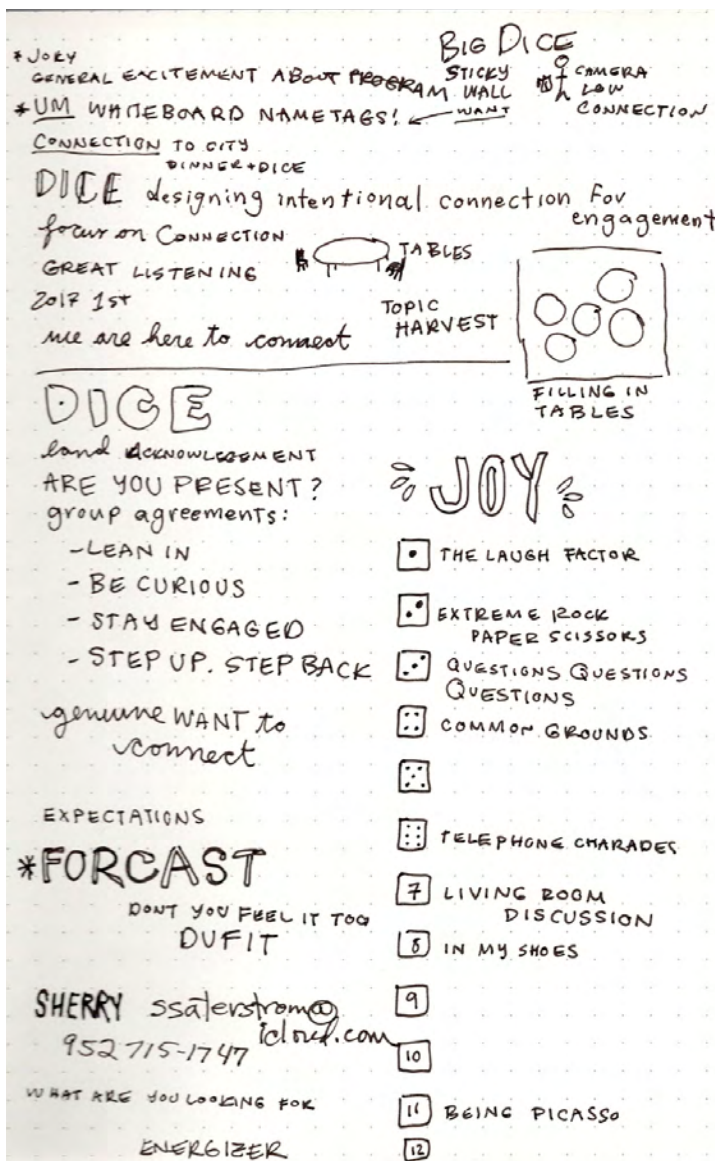 BIG DICE
* JOEY
GENERAL EXCITEMENT ABOUT PROGRAM
STICKY
WALL
WANT
CAMERA
LOW
CONNECTION
* UM WHITEBOARD NAMETAGS!
CONNECTION TO CITY
DINNER + DICE
DICE designing intentional connection For
engagement
focus on CONNECTION
TABLES
GREAT LISTENING
2017 1ST
TOPIC
HARVEST
we are here to connect
FILLING IN
TABLES
DICE
land ACKNOWLEGEMENT
ARE YOU PRESENT?
group agreements:
- LEAN IN
- BE CURIOUS
- STAY ENGAGED
- STEP UP. STEP BACK
genuine WANT to
connect
EXPECTATIONS
*FORCAST
DONT YOU FEEL IT TOO
DUFIT
SHERRY ssaterstrom@
icloud.com
952 715-1747
WHAT ARE YOU LOOKING FOR
ENERGIZER
JOY
THE LAUGH FACTOR
EXTREME ROCK
PAPER SCISSORS
QUESTIONS QUESTIONS
QUESTIONS
COMMON GROUNDS
TELEPHONE CHARADES
7 LIVING ROOM
DISCUSSION
8 IN MY SHOES
9
10
11 BEING PICASSO
12